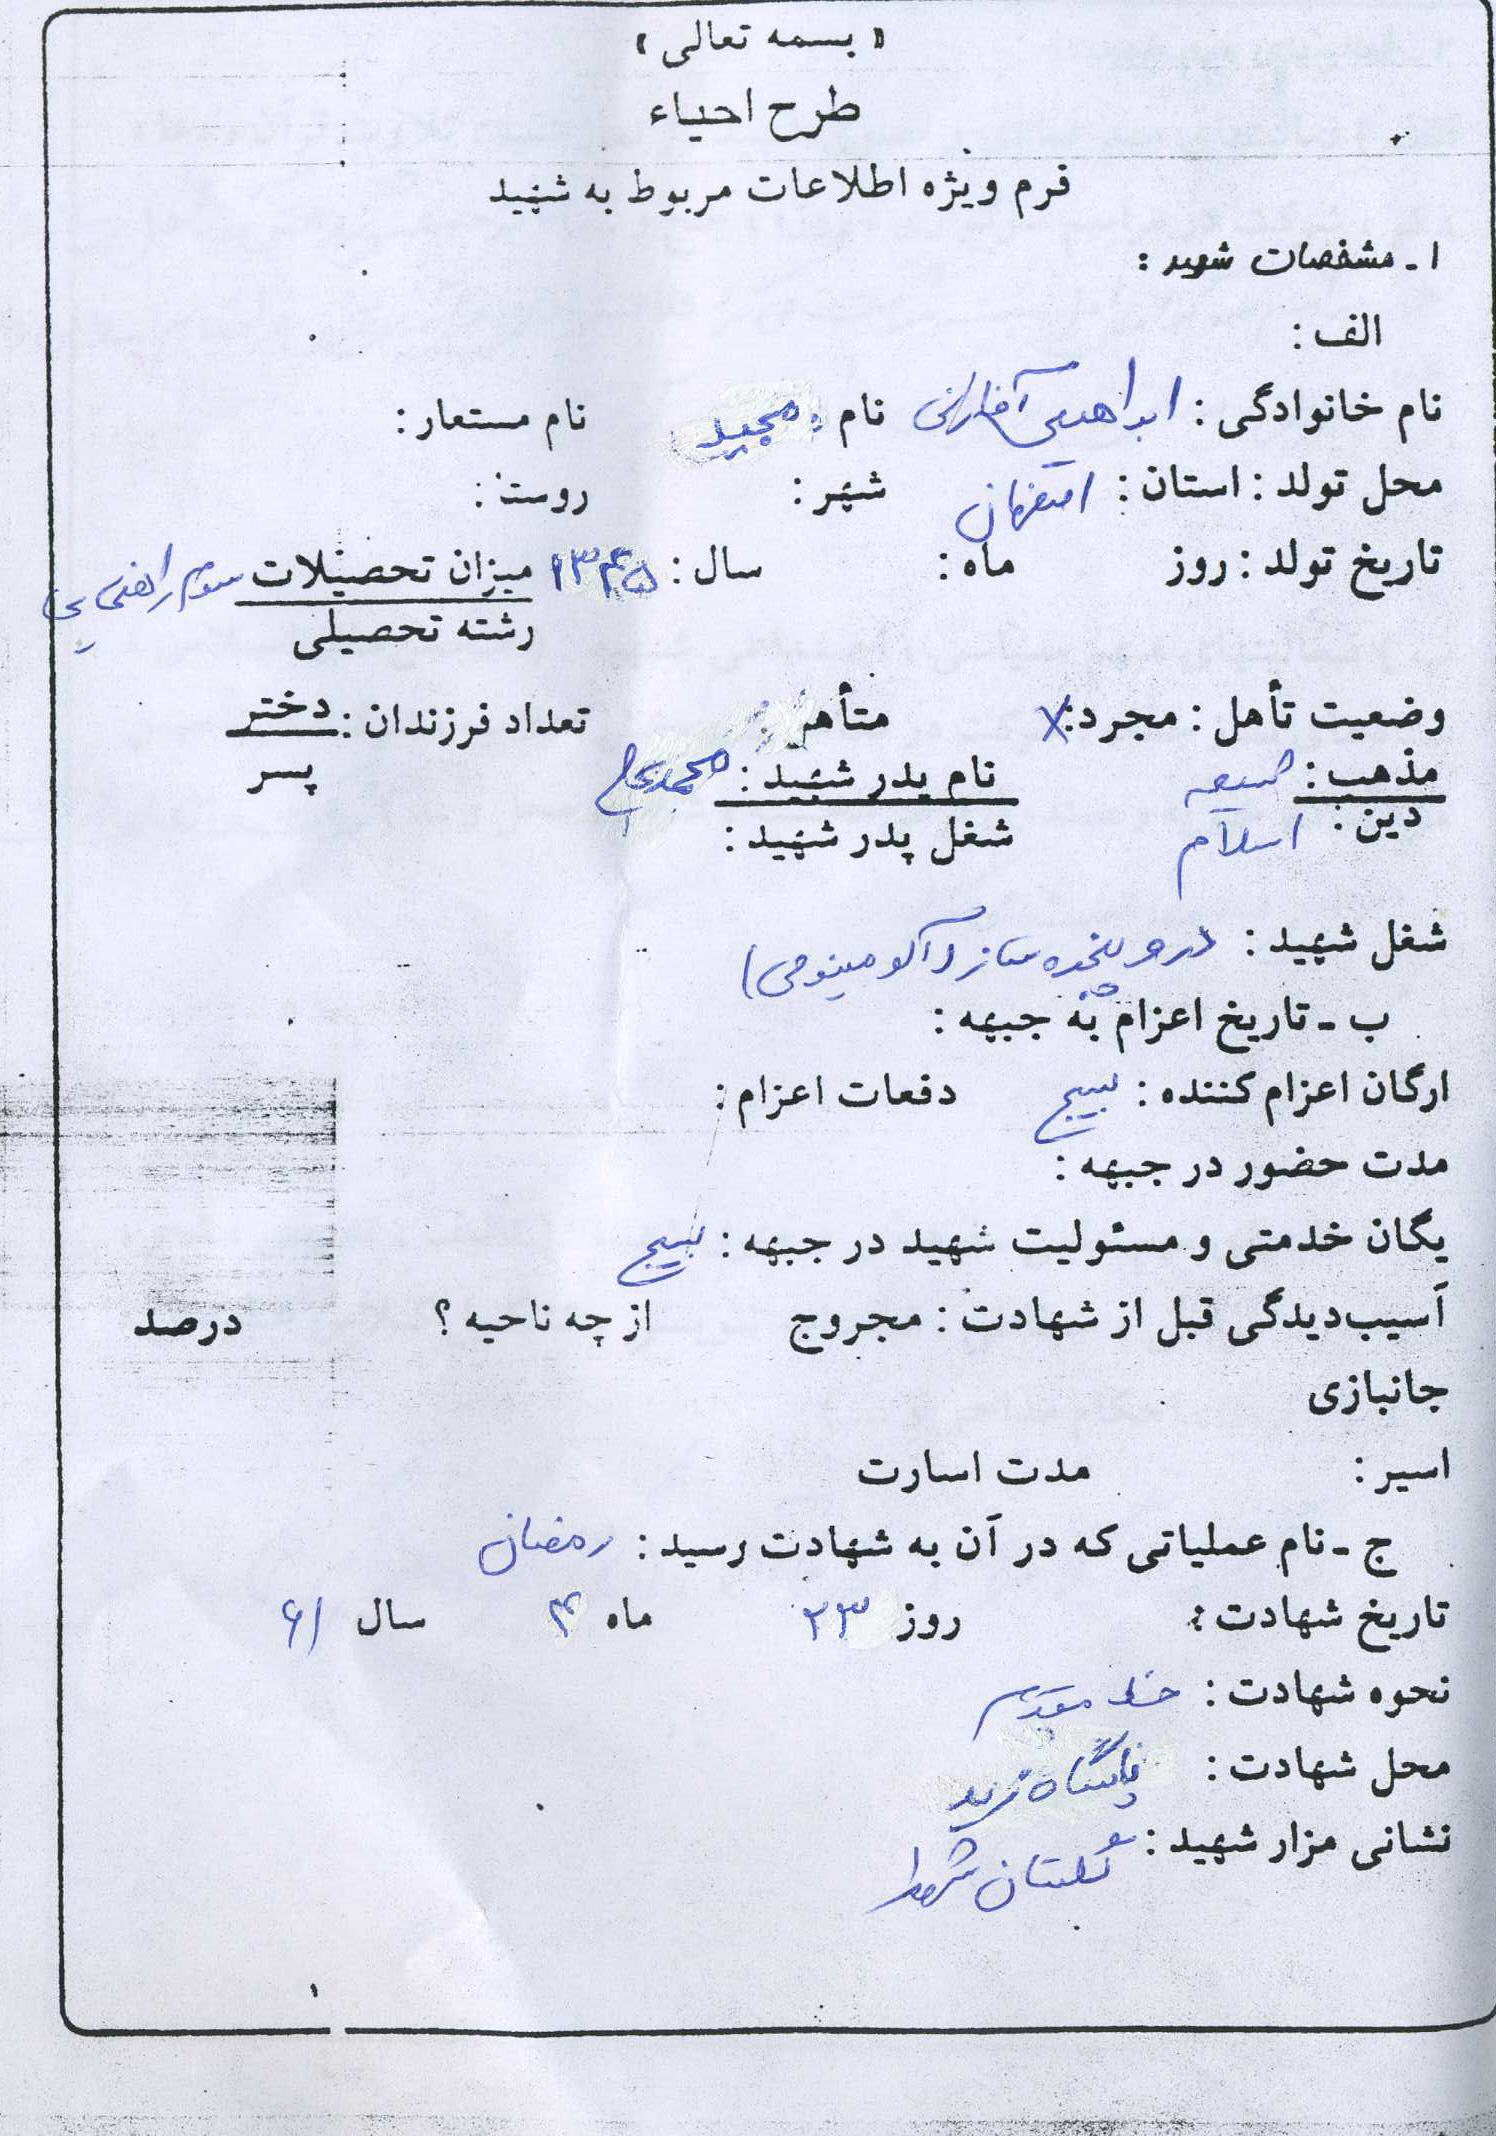 « بسمه تعالی »
طرح احیاء
فرم ویژه اطلاعات مربوط به شهید
۱ ـ مشخصات شهید :
الف :
نام خانوادگی : ابراهیمی نام : مجید نام مستعار :
محل تولد : استان : اصفهان شهر : روستا :
تاریخ تولد : روز ماه : سال : ۱۳۴۵ میزان تحصیلات سوم راهنمایی
رشته تحصیلی
وضعیت تأهل : مجرد : x متأهل : تعداد فرزندان : دختر
پسر
مذهب : شیعه نام پدر شهید : محمدعلی
دین : اسلام شغل پدر شهید :
شغل شهید : درو پنجره ساز (آلومینومی)
ب ـ تاریخ اعزام به جبهه :
ارگان اعزام کننده : بسیج دفعات اعزام :
مدت حضور در جبهه :
یگان خدمتی و مسئولیت شهید در جبهه : بسیج
آسیب‌دیدگی قبل از شهادت : مجروح از چه ناحیه ؟ درصد
جانبازی
اسیر : مدت اسارت
ج ـ نام عملیاتی که در آن به شهادت رسید : رمضان
تاریخ شهادت : روز ۲۳ ماه ۴ سال ۶۱
نحوه شهادت : خط مقدم
محل شهادت : پاسگاه زید
نشانی مزار شهید : گلستان شهدا
۱